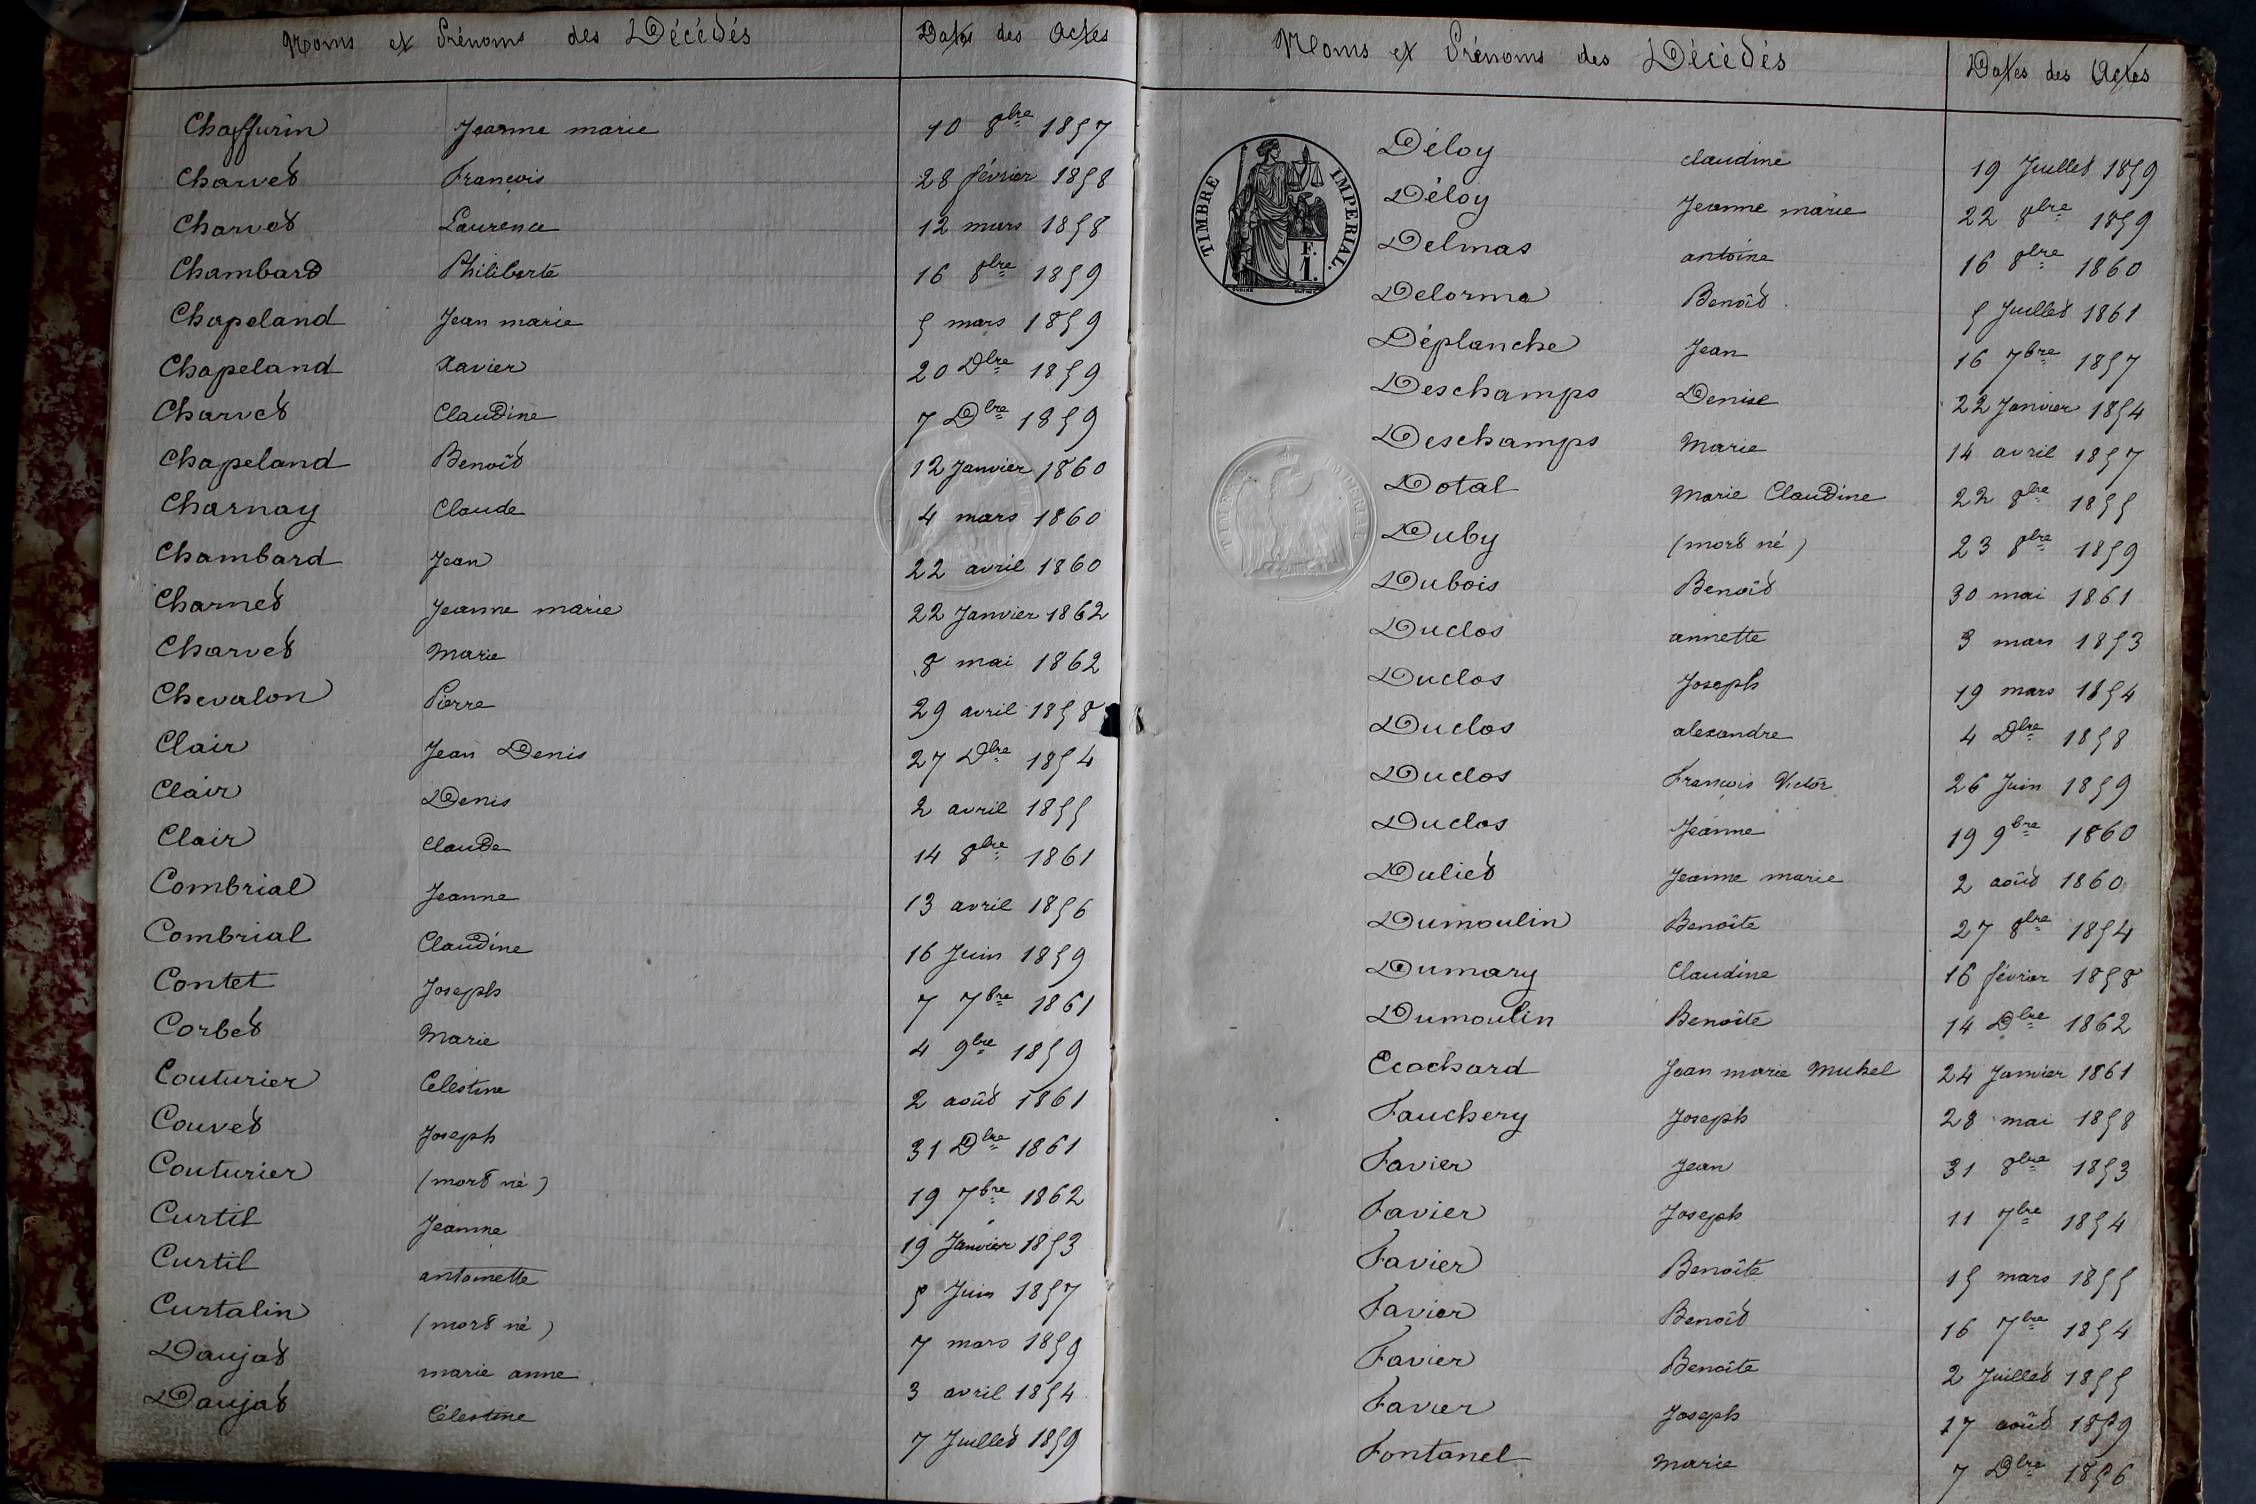 Noms et Prénoms des Décédés Dates des Actes
Chaffurin Jeanne marie 10 8bre 1857
Charvet François 28 février 1858
Charvet Laurence 12 mars 1858
Chambard Philiberte 16 8bre 1859
Chapeland Jean marie 5 mars 1859
Chapeland Xavier 20 Dbre 1859
Charvet Claudine 7 Dbre 1859
Chapeland Benoît 12 Janvier 1860
Charnay Claude 4 mars 1860
Chambard Jean 22 avril 1860
Charnet Jeanne marie 22 Janvier 1862
Charvet Marie 8 mai 1862
Chevalon Pierre 29 avril 1858
Clair Jean Denis 27 Dbre 1854
Clair Denis 2 avril 1855
Clair Claude 14 8bre 1861
Combrial Jeanne 13 avril 1856
Combrial Claudine 16 Juin 1859
Contet Joseph 7 7bre 1861
Corbet Marie 4 9bre 1859
Couturier Célestine 2 août 1861
Couvet Joseph 31 Dbre 1861
Couturier (mort né) 19 7bre 1862
Curtil Jeanne 19 Janvier 1853
Curtil antoinette 5 Juin 1857
Curtalin (mort né) 7 mars 1859
Daujat marie anne 3 avril 1854
Daujat Célestine 7 Juillet 1859
Noms et Prénoms des Décédés Dates des Actes
TIMBRE IMPERIAL.
F.
1.
Déloy claudine 19 Juillet 1859
Déloy Jeanne marie 22 8bre 1859
Delmas antoine 16 8bre 1860
Delorme Benoît 5 Juillet 1861
Déplanche Jean 16 7bre 1857
Deschamps Denise 22 Janvier 1854
Deschamps Marie 14 avril 1857
Dotal Marie Claudine 22 8bre 1855
Duby (mort né) 23 8bre 1859
Dubois Benoît 30 mai 1861
Duclos annette 3 mars 1853
Duclos Joseph 19 mars 1854
Duclos alexandre 4 Dbre 1858
Duclos François Victor 26 Juin 1859
Duclos Jeanne 19 9bre 1860
Duliet Jeanne marie 2 août 1860
Dumoulin Benoîte 27 8bre 1854
Dumary Claudine 16 février 1858
Dumoulin Benoîte 14 Dbre 1862
Ecochard Jean marie Michel 24 Janvier 1861
Fauchery Joseph 28 mai 1858
Favier Jean 31 8bre 1853
Favier Joseph 11 7bre 1854
Favier Benoîte 15 mars 1855
Favier Benoît 16 7bre 1854
Favier Benoîte 2 Juillet 1855
Favier Joseph 17 août 1859
Fontanel Marie 7 Dbre 1856